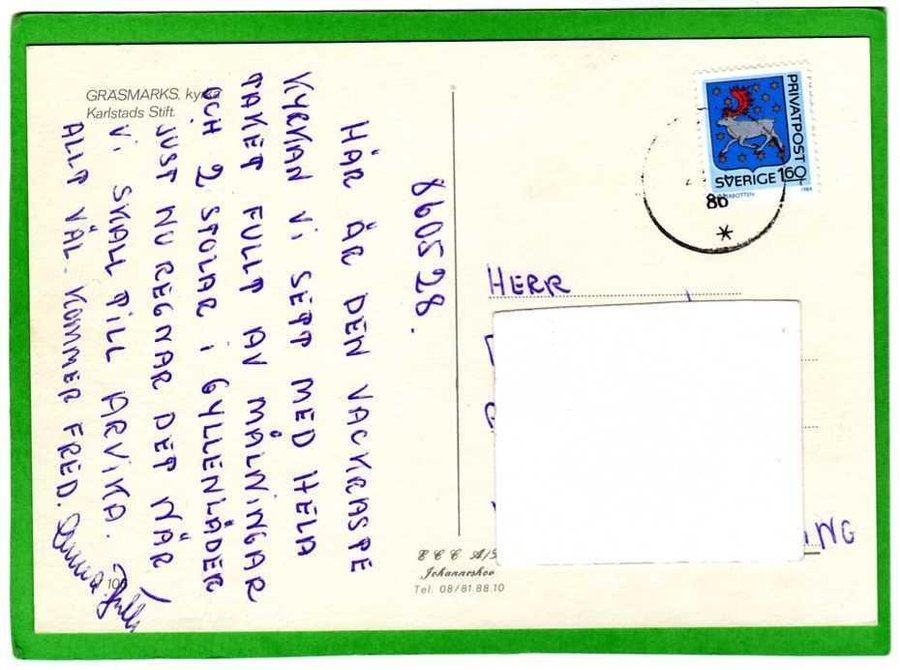 GRÄSMARKS, kyrka
Karlstads Stift.
860528.
HÄR ÄR DEN VACKRASTE
KYRKAN VI SETT MED HELA
TAKET FULLT AV MÅLNINGAR
OCH 2 STOLAR I GYLLENLÄDER
JUST NU REGNAR DET NÄR
VI SKALL TILL ARVIKA.
ALLT VÄL. KOMMER FRED.
100
PRIVATPOST
SVERIGE 160
1984
86
HERR
ING
Johanneshov
Tel. 08/81.88.10